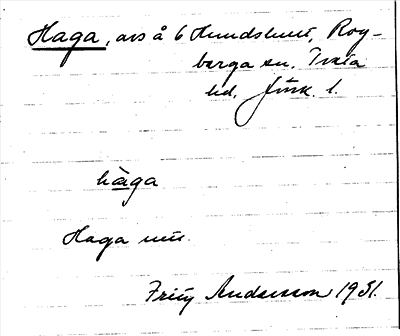 Haga, avs å 6 Hundslund, Rog-
berga sn. Tveta
hd. Jönk. l.
håga
Haga
Andersson 1931.